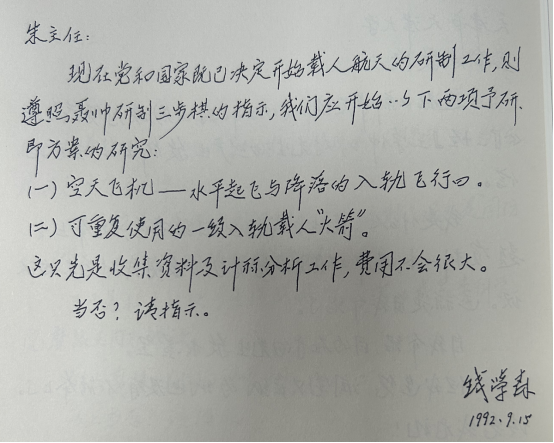 朱主任：
现在党和国家既已决定开始载人航天的研制工作，则
遵照聂帅研制三步棋的指示，我们应开始以下两项予研，
即方案的研究：
(一) 空天飞机——水平起飞与降落的入轨飞行
(二) 可重复使用的一级入轨载人“火箭”。
这只先是收集资料及计称分析工作，费用不会很大。
当否？请指示。
钱学森
1992.9.15